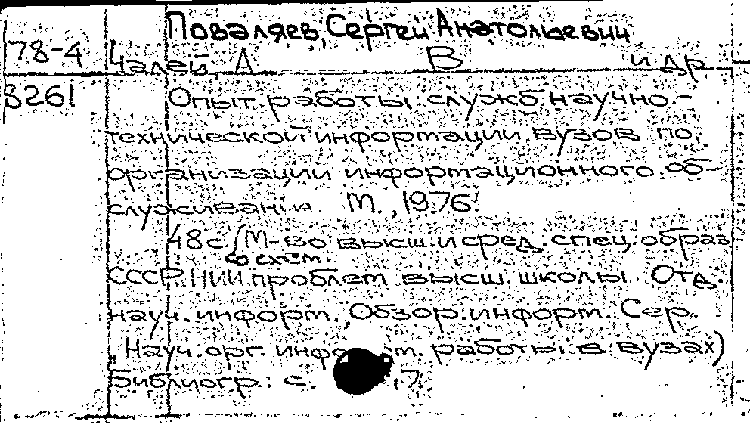 Поваляев Сергей Анатольевич
78-4 Чалей, А В и др
3261 Опыт работы служб научно-
технической информации вузов по
организации информационного об-
служивания М., 1976
48с (М-во высш. и сред. спец. образ
со схем.
СССР. НИИ проблем высш. школы. Отд.
науч. информ. Обзор. информ. Сер.
"Науч. орг. информ. работы в вузах)
Библиогр.: с.